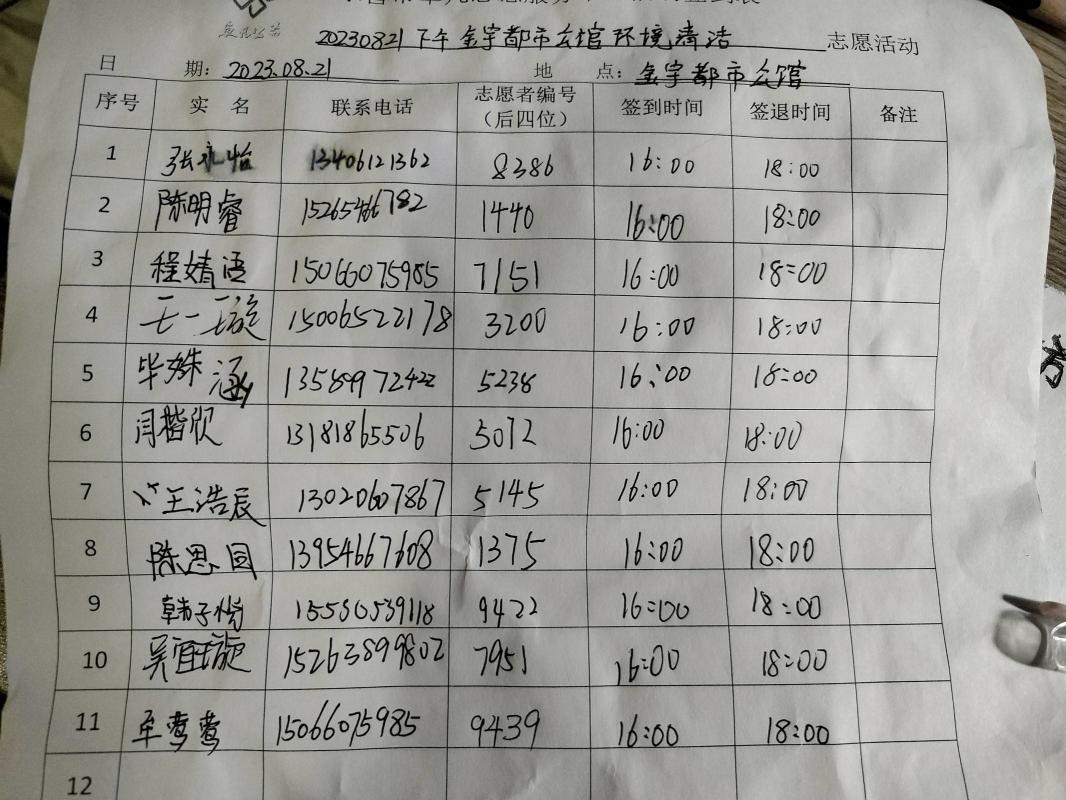 20230821下午金宇都市公馆环境清洁 志愿活动
日 期: 2023.08.21 地 点: 金宇都市公馆
序号 实 名 联系电话 志愿者编号 签到时间 签退时间 备注
(后四位)
1 张 怡 13406121362 8386 16:00 18:00
2 陈明睿 15265466782 1440 16:00 18:00
3 程婧语 15066075985 7151 16:00 18:00
4 王一璇 15006522178 3200 16:00 18:00
5 毕姝涵 13589972422 5238 16:00 18:00
6 闫楷欣 13181865506 5072 16:00 18:00
7 王浩辰 13020607867 5145 16:00 18:00
8 陈思国 13954667608 1375 16:00 18:00
9 韩子悦 15550539118 9422 16:00 18:00
10 吴宜璇 15263899802 7951 16:00 18:00
11 牟莺莺 15066075985 9439 16:00 18:00
12